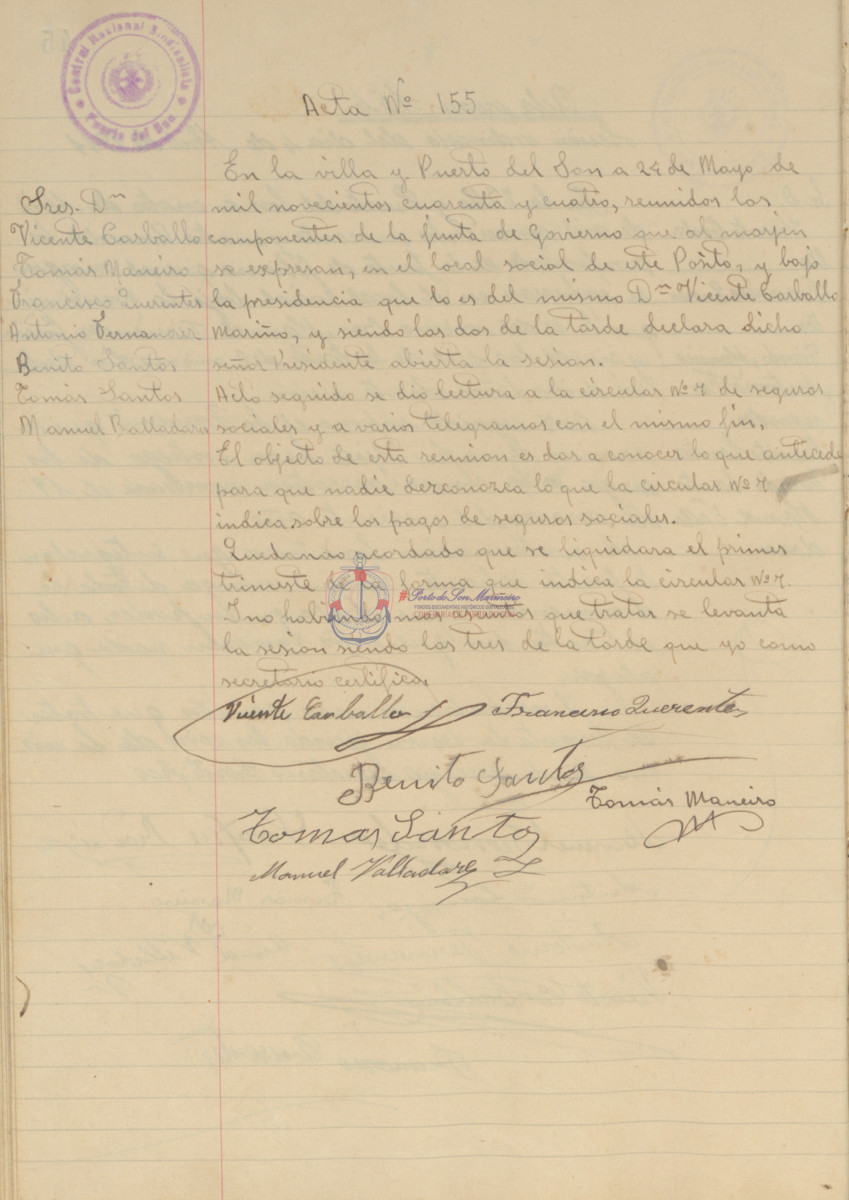 Central Nacional Sindicalista
Puerto del Son
Acta Nº 155
Sres. Dn
Vicente Carballo
Tomás Maneiro
Francisco Querentes
Antonio Fernandez
Benito Santos
Tomás Santos
Manuel Balladares
En la villa y Puerto del Son a 24 de Mayo de
mil novecientos cuarenta y cuatro, reunidos los
componentes de la junta de Govierno que al marjen
se expresan, en el local social de este Posito, y bajo
la presidencia que lo es del mismo Dn Vicente Carballo
Mariño, y siendo las dos de la tarde declara dicho
señor Presidente abierta la sesion.
Acto seguido se dio lectura a la circular Nº 7 de seguros
sociales y a varios telegramos con el mismo fin.
El objecto de esta reunion es dar a conocer lo que antecede
para que nadie dezconozca lo que la circular Nº 7
indica sobre los pagos de seguros sociales.
Quedando acordado que se liquidara el primes
trimeste de la forma que indica la circular Nº 7.
I no habiendo mas asuntos que tratar se levanta
la sesion siendo las tres de la tarde que yo como
secretario certifica.
#Porto do Son Mariñeiro
Vicente Carballo Francisco Querentes
Benito Santos
Tomás Maneiro
Tomas Santos
Manuel Valladares